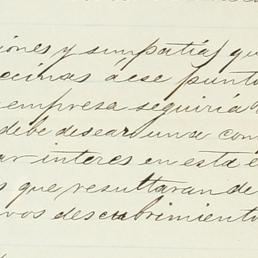 iones y simpatías qu
ecinas á ese punto
empresa seguiría
debe desear una com
ar interes en esta e
s que resultaran de
vos descubrimiento